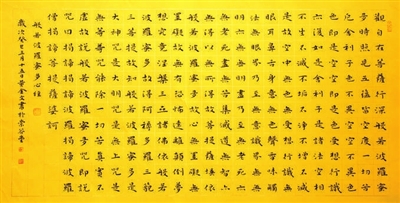 觀自在菩薩行深般若波羅蜜
多時照見五蘊皆空度一切苦
厄舍利子色不異空空不異色
色即是空空即是色受想行識
亦復如是舍利子是諸法空相
不生不滅不垢不淨不增不減
是故空中無色無受想行識無
眼耳鼻舌身意無色聲香味觸
法無眼界乃至無意識界無無
明亦無無明盡乃至無老死亦
無老死盡無苦集滅道無智亦
無得以無所得故菩提薩埵依
般若波羅蜜多故心無罣礙無
罣礙故無有恐怖遠離顛倒夢
想究竟涅槃三世諸佛依般若
波羅蜜多故得阿耨多羅三藐
三菩提故知般若波羅蜜多是
大神咒是大明咒是無上咒是
無等等咒能除一切苦真實不
虛故說般若波羅蜜多咒即說
咒曰揭諦揭諦波羅揭諦波羅
僧揭諦菩提薩婆訶
般若波羅蜜多心經
歲次癸巳三月十五日黃金文書於